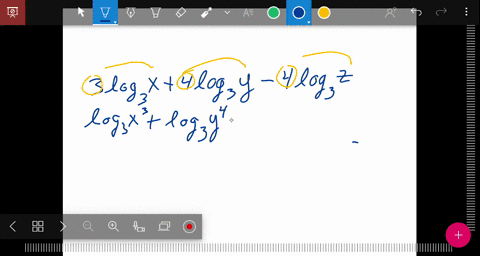 3 log₃ x + 4 log₃ y − 4 log₃ z
log₃ x³ + log₃ y⁴
-